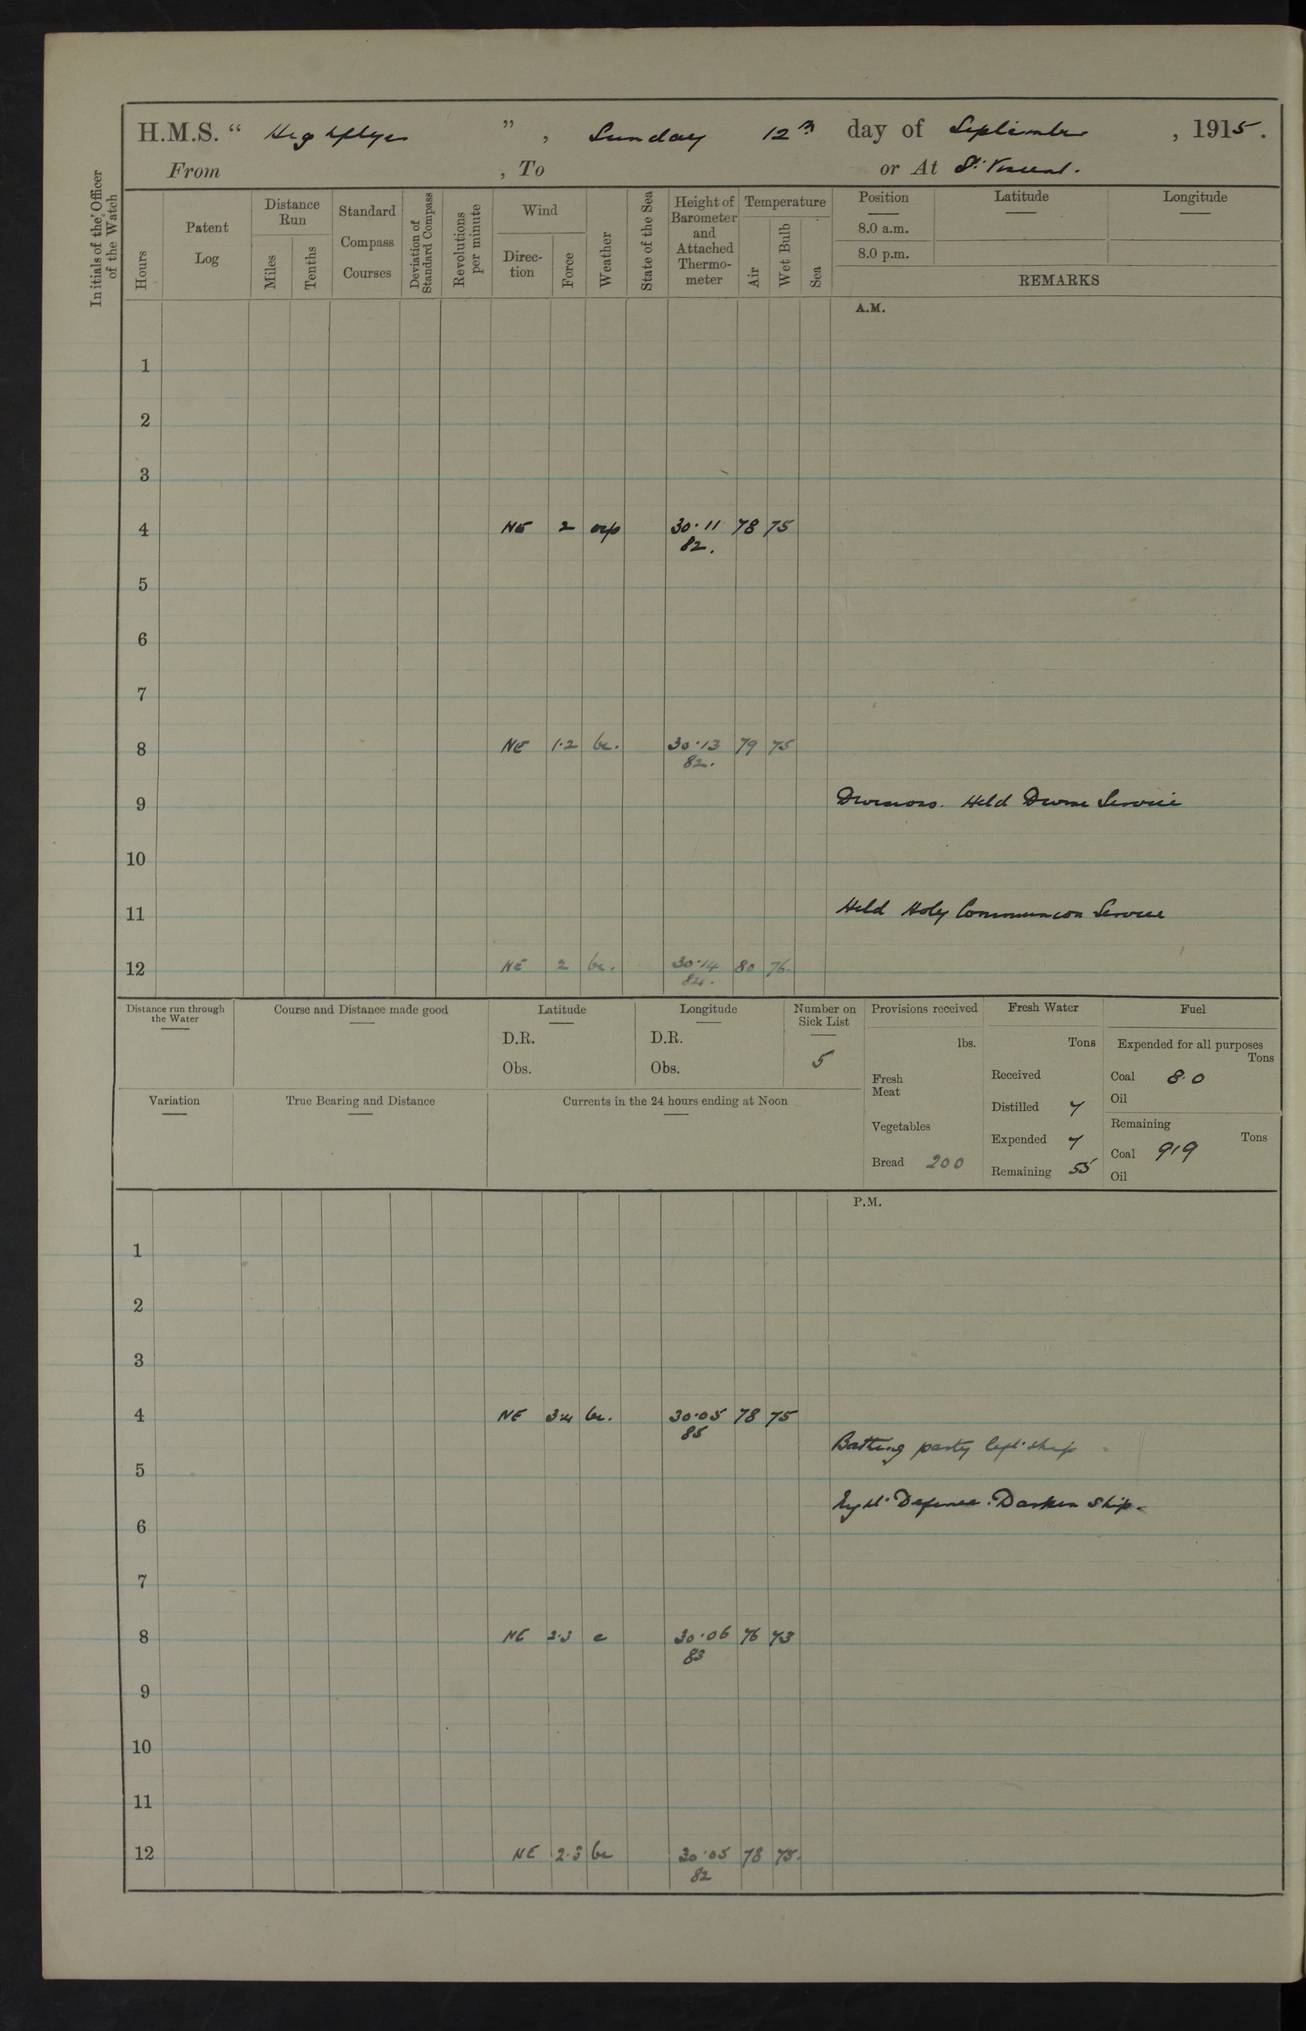 H.M.S. “ Highflyer ” , Sunday 12th day of September , 1915 .
From , To or At St. Vincent .
Initials of the Officer of the Watch
Hours
Patent Log
Distance Run
Miles
Tenths
Standard Compass Courses
Deviation of Standard Compass
Revolutions per minute
Wind
Direc-tion
Force
Weather
State of the Sea
Height of Barometer and Attached Thermo-meter
Temperature
Air
Wet Bulb
Sea
Position
8.0 a.m.
8.0 p.m.
Latitude
Longitude
REMARKS
A.M.
1
2
3
4 NE 2 30·11 78 75
82.
5
6
7
8 NE 1·2 bc. 30·13 79 75
82.
9 Divisions. Held Divine Service
10
11 Held Holy Communion Service
12 NE 2 bc. 30·14 80 76.
84.
Distance run through the Water
Course and Distance made good
Latitude
D.R.
Obs.
Longitude
D.R.
Obs.
Number on Sick List
5
Provisions received
lbs.
Fresh Meat
Vegetables
Bread 200
Fresh Water
Tons
Received
Distilled 7
Expended 7
Remaining 55
Fuel
Expended for all purposes
Tons
Coal 8.0
Oil
Remaining
Tons
Coal 919
Oil
Variation
True Bearing and Distance
Currents in the 24 hours ending at Noon
P.M.
1
2
3
4 NE 3·4 bc. 30·05 78 75
85
Bathing party left ship
5
Night Defence. Darken Ship.
6
7
8 NE 2·3 c 30·06 76 73
83
9
10
11
12 NE 2·3 bc 30·05 78 75.
82